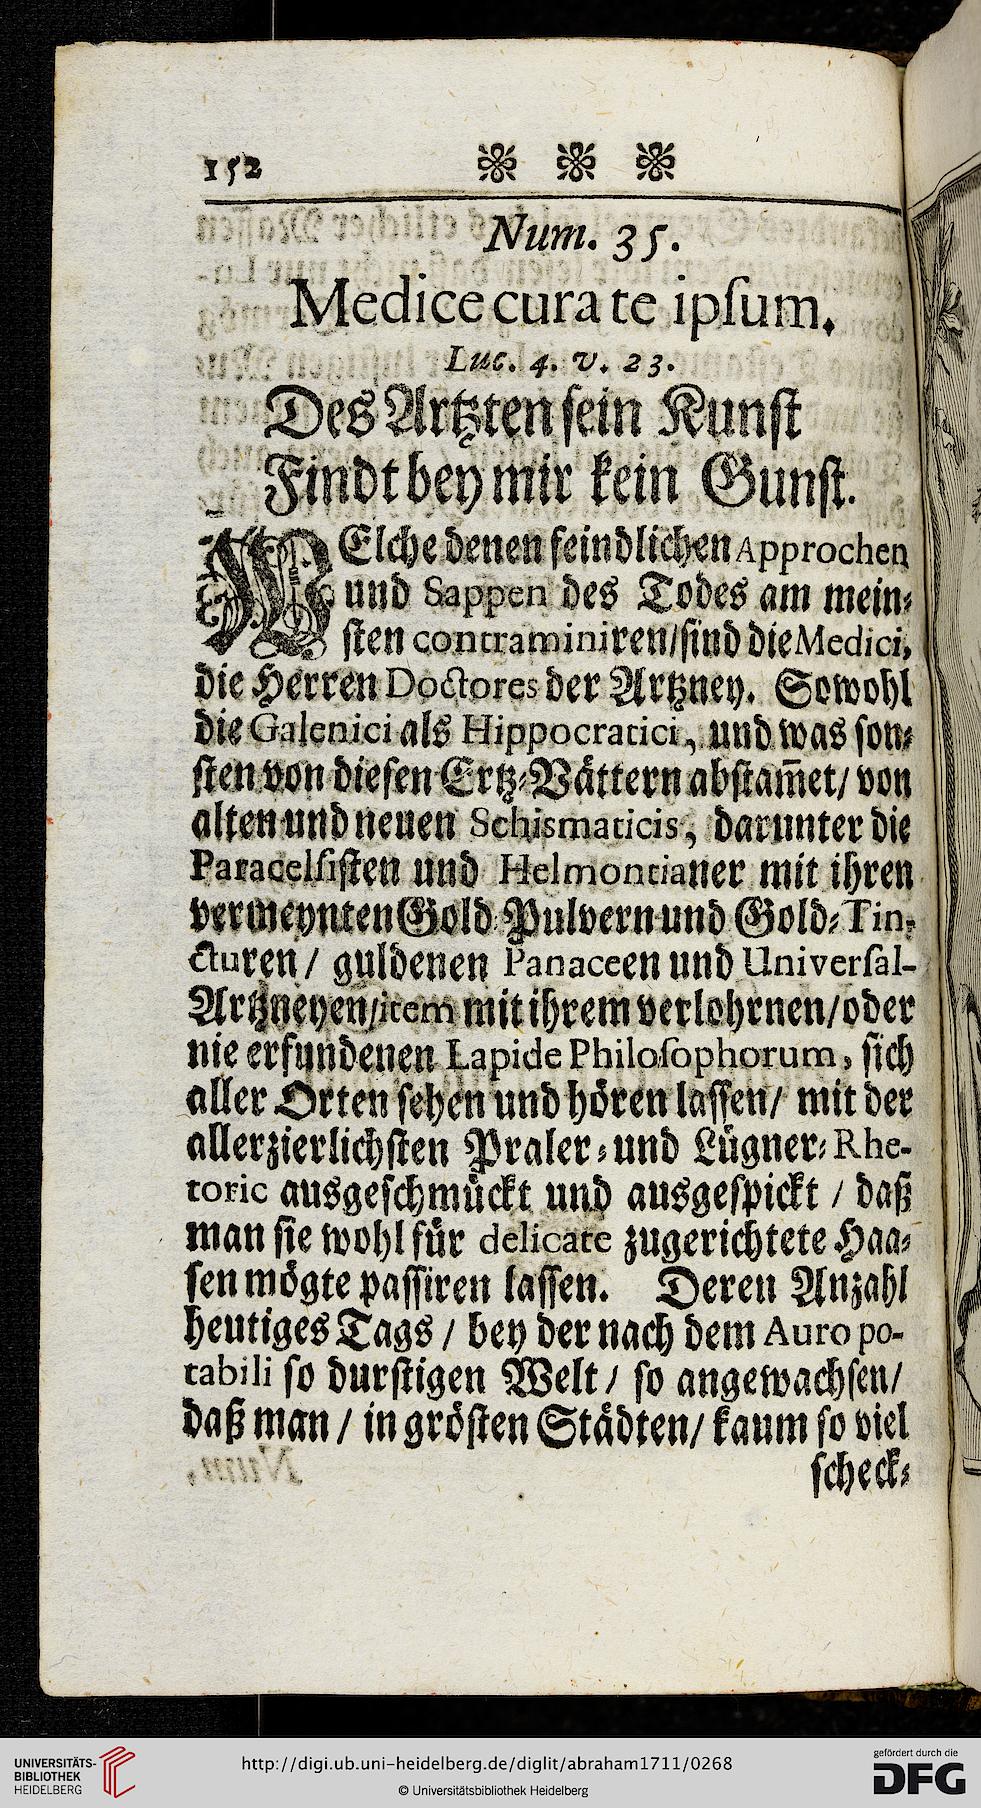 152
Num. 35.
Medice cura te ipſum.
Luc. 4. v. 23.
Des Artzten ſein Kunſt
Findt bey mir kein Gunſt.
WElche denen feindlichen Approchen
und Sappen des Todes am mein⸗
ſten contraminiren/ ſind die Medici,
die Herren Doctores der Artzney. Sowohl
die Galenici als Hippocratici, und was ſon⸗
ſten von dieſen Ertz⸗Vättern abſtam̅et/ von
alten und neuen Schismaticis, darunter die
Paracelſiſten und Helmontianer mit ihren
vermeynten Gold⸗Pulvern und Gold⸗Tin⸗
cturen/ guldenen Panaceen und Univerſal-
Artzneyen/ item mit ihrem verlohrnen/ oder
nie erfundenen Lapide Philoſophorum, ſich
aller Orten ſehen und hören laſſen/ mit der
allerzierlichſten Praler⸗ und Lügner⸗Rhe-
toric ausgeſchmückt und ausgeſpickt / daß
man ſie wohl für delicate zugerichtete Haa⸗
ſen mögte paſſiren laſſen. Deren Anzahl
heutiges Tags / bey der nach dem Auro po-
tabili ſo durſtigen Welt / ſo angewachſen/
daß man / in gröſten Städten/ kaum ſo viel
ſcheck⸗
UNIVERSITÄTS-
BIBLIOTHEK
HEIDELBERG
http://digi.ub.uni-heidelberg.de/diglit/abraham1711/0268
© Universitätsbibliothek Heidelberg
gefördert durch die
DFG